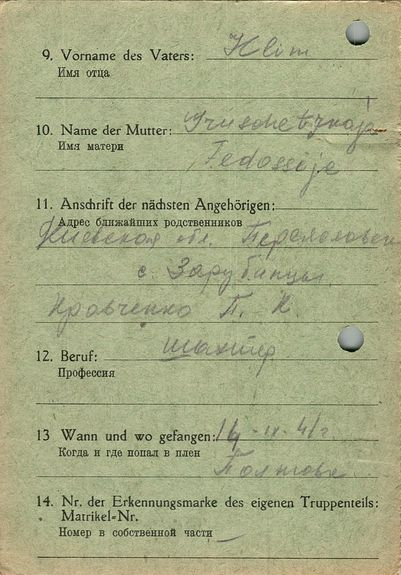 9. Vorname des Vaters: Klim
Имя отца
10. Name der Mutter:
Имя матери
Fedossaje
11. Anschrift der nächsten Angehörigen:
Адрес ближайших родственников
Киевская обл.
с. Зарубинцы
Кравченко П. К.
12. Beruf: шахтер
Профессия
13 Wann und wo gefangen: 14-IX-41г
Когда и где попал в плен
14. Nr. der Erkennungsmarke des eigenen Truppenteils:
Matrikel-Nr.
Номер в собственной части —